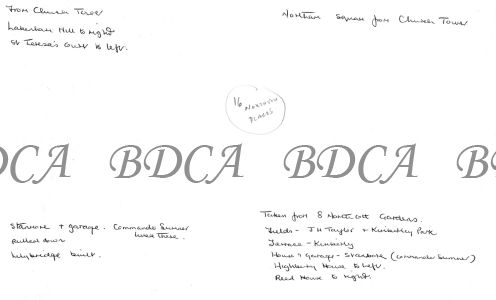 From Church Tower
Lakenham Hill to right
St Teresa's Court to left.
Northam Square from Church Tower
16
NORTHAM
PLACES
BDCA BDCA BDCA B
Stanmore + garage. Commando Sumner
lived there.
pulled down
built.
Taken from 8 Northcott Gardens.
Fields - J H Taylor + Kimberley Park
Terrace - Kimberley
House + Garage - Stanmore (Commando Sumner)
Highbury House to left.
Reed House to right.